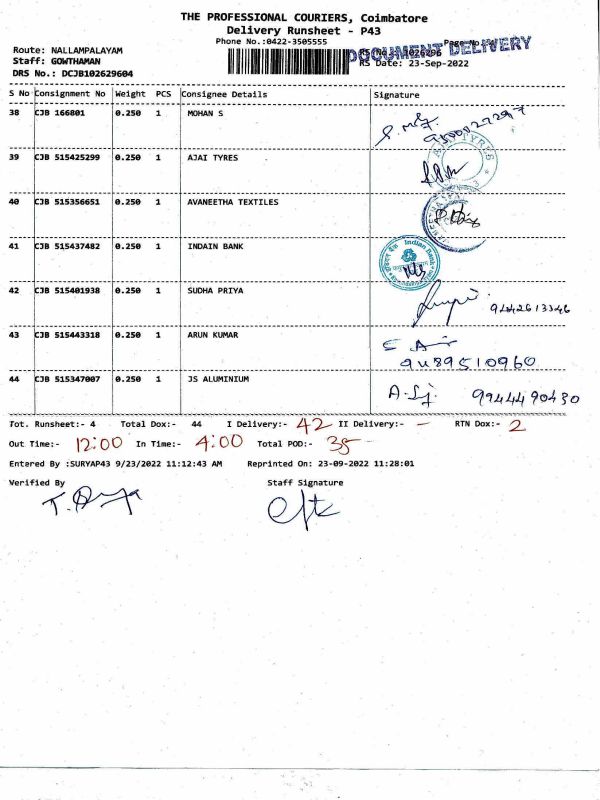 THE PROFESSIONAL COURIERS, Coimbatore
Delivery Runsheet - P43
Phone No.:0422-3505555
DOCUMENT DELIVERY
Route: NALLAMPALAYAM
RS No.: 1026296
Staff: GOWTHAMAN
RS Date: 23-Sep-2022
DRS No.: DCJB102629604
S No Consignment No Weight PCS Consignee Details Signature
38 CJB 166801 0.250 1 MOHAN S
39 CJB 515425299 0.250 1 AJAI TYRES
40 CJB 515356651 0.250 1 AVANEETHA TEXTILES
41 CJB 515437482 0.250 1 INDAIN BANK
Indian Bank
42 CJB 515401938 0.250 1 SUDHA PRIYA 9442613346
43 CJB 515443318 0.250 1 ARUN KUMAR
9489510960
44 CJB 515347007 0.250 1 JS ALUMINIUM 9944490430
Tot. Runsheet:- 4 Total Dox:- 44 I Delivery:- 42 II Delivery:- - RTN Dox:- 2
Out Time:- 12:00 In Time:- 4:00 Total POD:- 35
Entered By :SURYAP43 9/23/2022 11:12:43 AM Reprinted On: 23-09-2022 11:28:01
Verified By Staff Signature